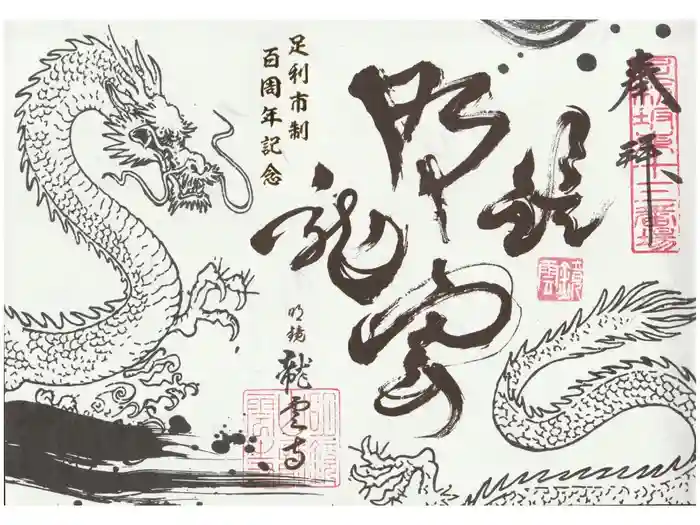 奉拝
明鏡
龍雲
鏡雲
足利市制
百周年記念
明鏡
龍雲寺